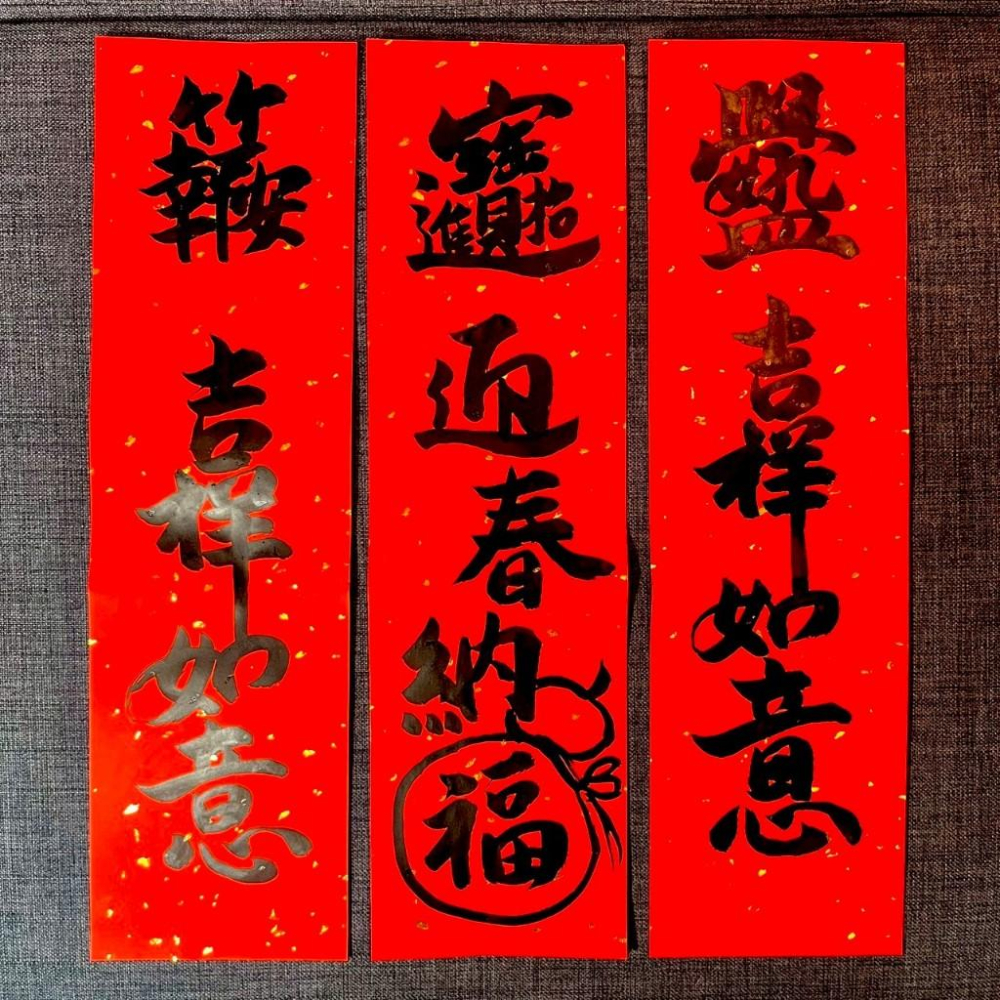 孔孟好學 吉祥如意
招財進寶 迎春納福
竹報平安 吉祥如意